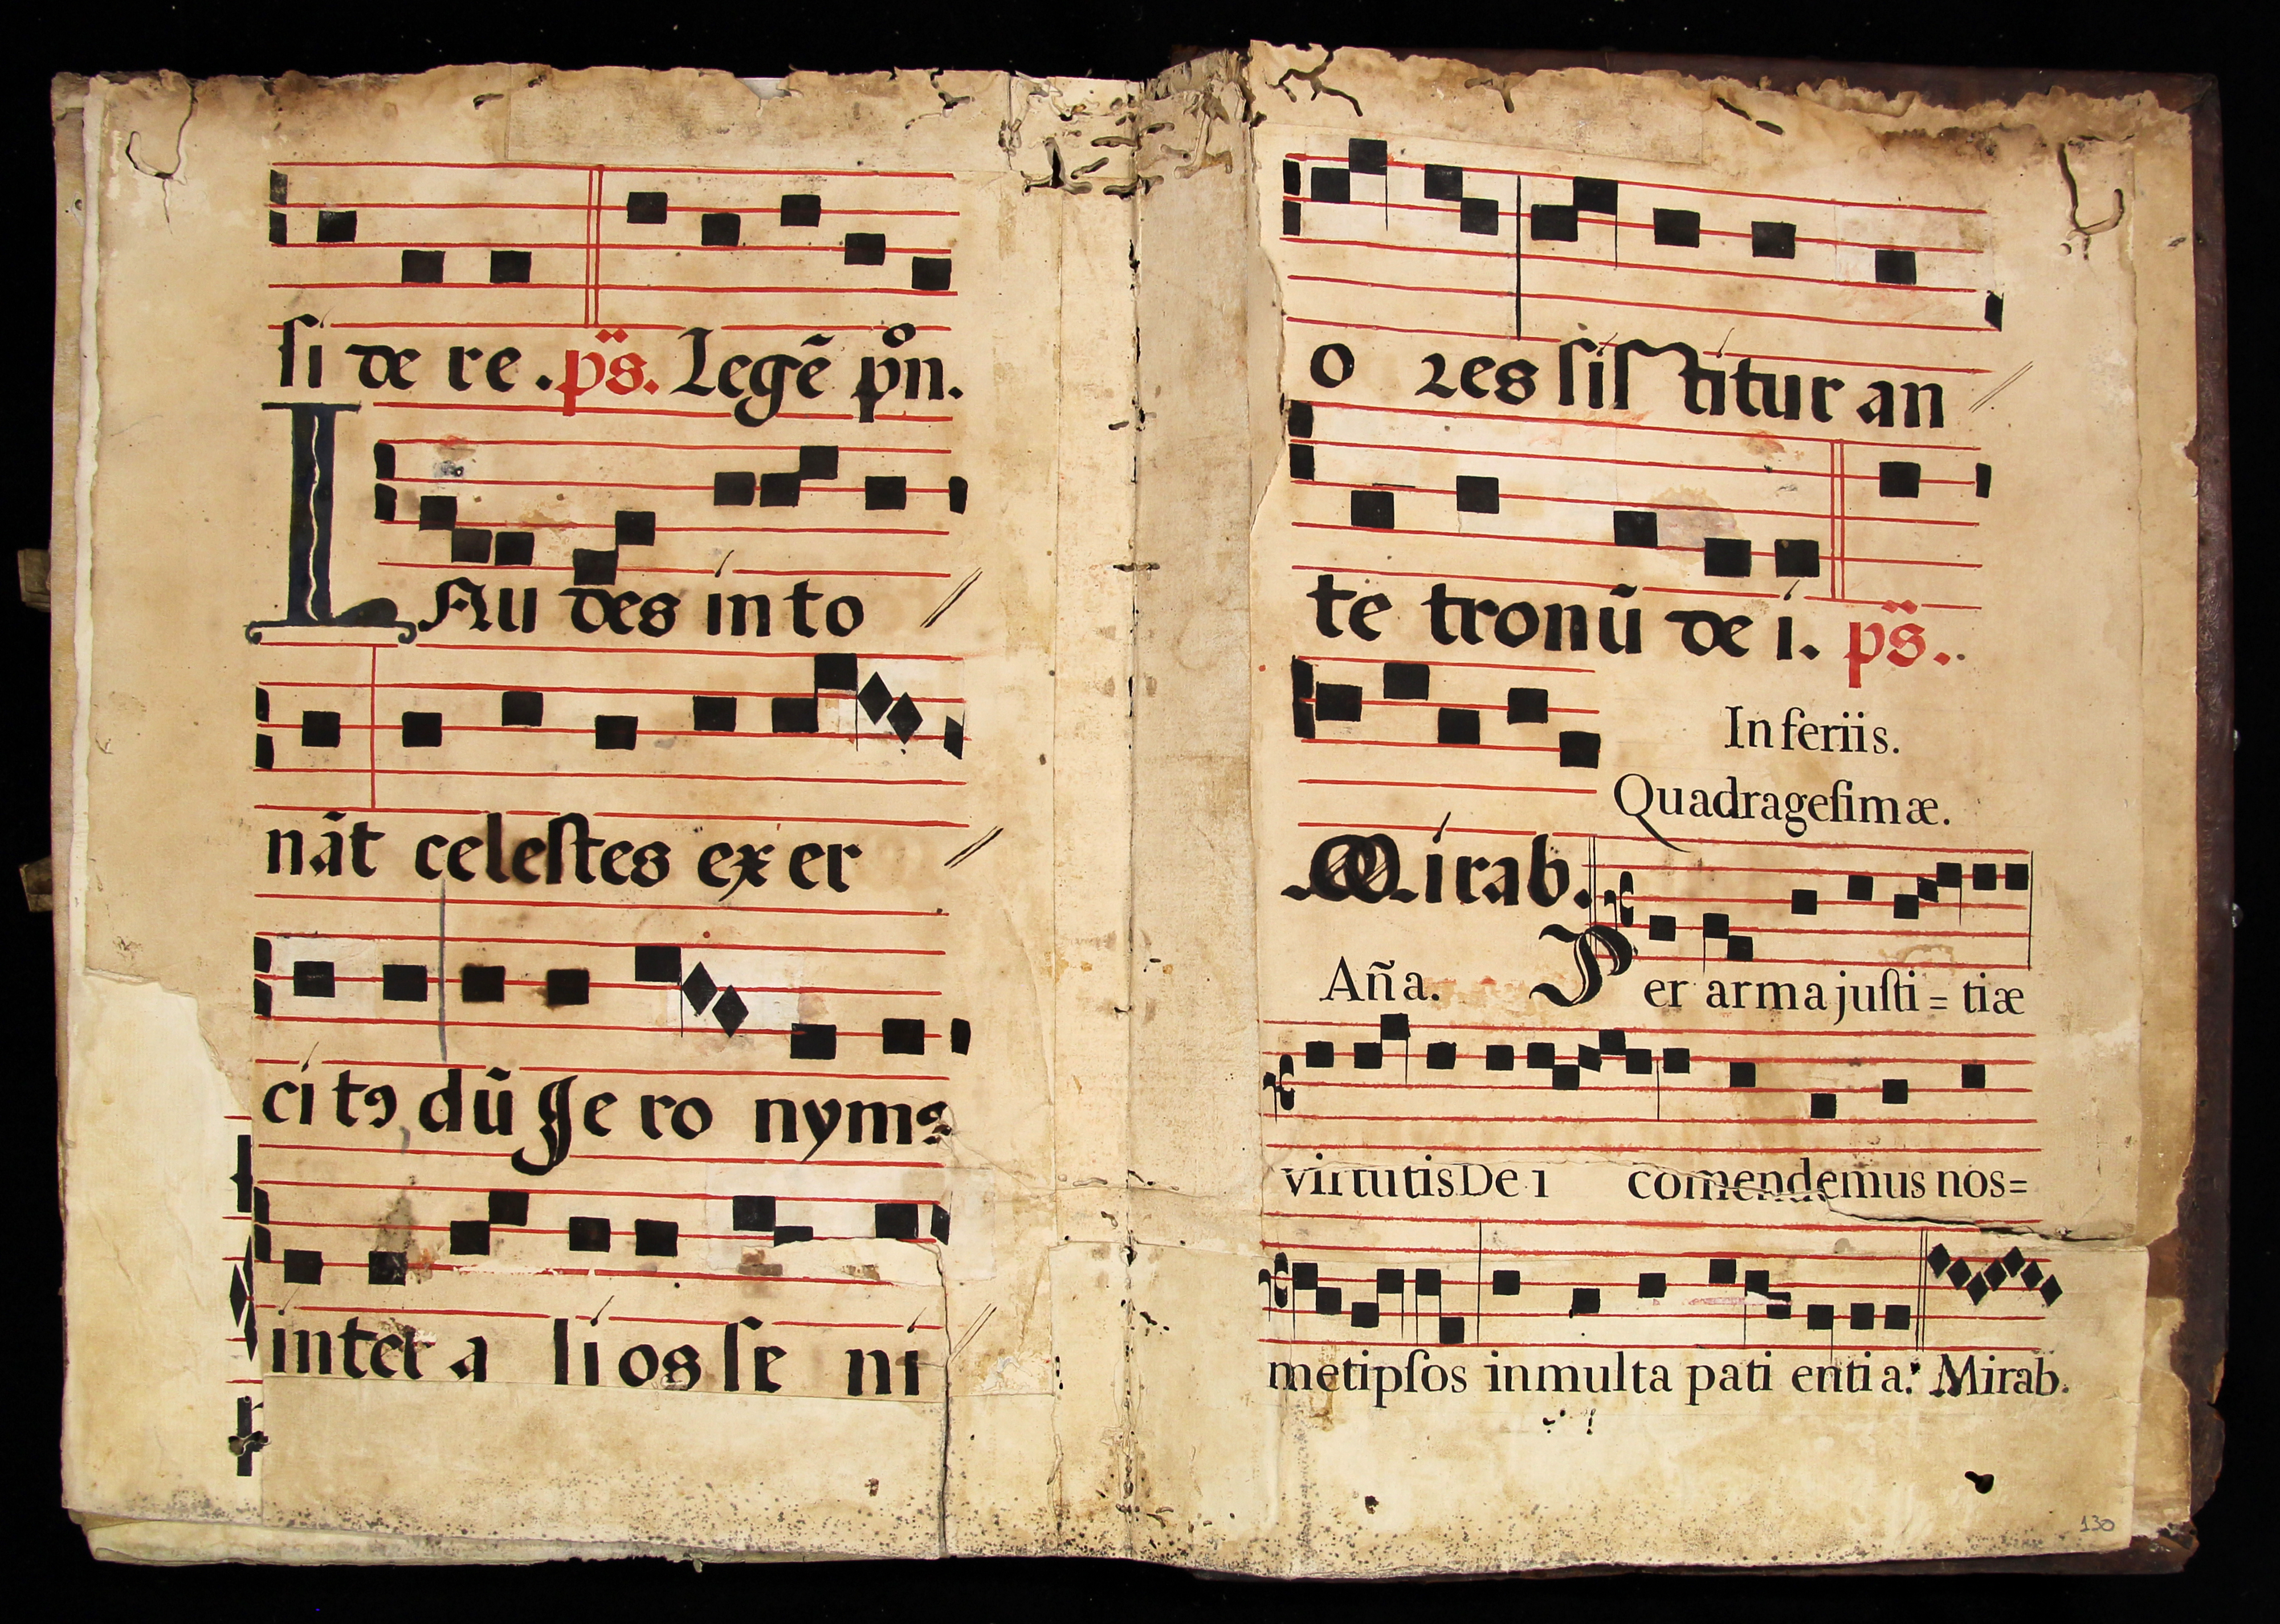 si de re . ps̈. Legē pºn.
LAu des in to
nāt celeſtes ex er
ci tꝯ dū Je ro nymꝯ
inter a lios ſe ni
o ꝛes ſiſ titur an
te tronū de i. ps̈.
In feriis.
Quadrageſimæ.
Mirab.
Aña. Per arma juſti = tiæ
virtutis De i comendemus nos=
metipſos in multa pati enti a. Mirab.
130